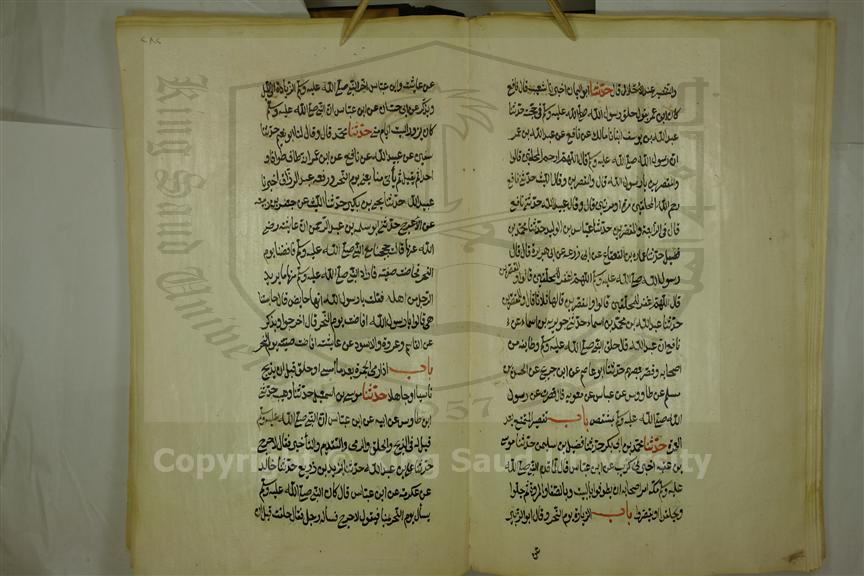 والتقصير عند الاحلال قال حدثنا ابو اليمان اخبرنا شعيب قال نافع
كان ابن عمر يقول حلق رسول الله صلى الله عليه وسلم في حجته حدثنا
عبد الله بن يوسف انبانا مالك عن نافع عن عبد الله بن عمر
ان رسول الله صلى الله عليه وسلم قال اللهم ارحم المحلقين قالوا
والمقصرين يا رسول الله قال والمقصرين وقال الليث حدثني نافع
رحم الله المحلقين مرة او مرتين قال وقال عبيد الله حدثني نافع
قال في الرابعة والمقصرين حدثنا عباس بن الوليد حدثنا محمد بن
فضيل حدثنا عمارة بن القعقاع عن ابي زرعة عن ابي هريرة قال قال
رسول الله صلى الله عليه وسلم اللهم اغفر للمحلقين قالوا وللمقصرين
قال اللهم اغفر للمحلقين قالوا وللمقصرين قالها ثلاثا قال وللمقصرين
حدثنا عبد الله بن محمد بن اسماء حدثنا جويرية بن اسماء عن
نافع ان عبد الله قال حلق النبي صلى الله عليه وسلم وطائفة من
اصحابه وقصر بعضهم حدثنا ابو عاصم عن ابن جريج عن الحسن بن
مسلم عن طاووس عن ابن عباس عن معوية قال قصرت عن رسول
الله صلى الله عليه وسلم بمشقص باب تقصير المتمتع بعد
العمرة حدثنا محمد بن ابي بكر حدثنا فضيل بن سليمن حدثنا موسى
بن عقبة اخبرني كريب عن ابن عباس قال لما قدم النبي صلى الله
عليه وسلم مكة امر اصحابه ان يطوفوا بالبيت وبالصفا والمروة ثم يحلوا
ويحلقوا او يقصروا باب الزيارة يوم النحر وقال ابو الزبير
عن عائشة وابن عباس اخر النبي صلى الله عليه وسلم الزيارة الى الليل
ويذكر عن ابي حسان عن ابن عباس ان النبي صلى الله عليه وسلم
كان يزور البيت ايام منى حدثنا محمد قال وقال لنا ابو نعيم حدثنا
سفين عن عبيد الله عن نافع عن ابن عمر انه طاف طوافا و
احدا ثم يقيل ثم ياتي منا يعني يوم النحر ورفعه عبد الرزاق اخبرنا
عبيد الله حدثنا يحيى بن بكير حدثنا الليث عن جعفر بن ربيعة
عن الاعرج حدثني ابو سلمة بن عبد الرحمن ان عائشة رضي
الله عنها قالت حججنا مع النبي صلى الله عليه وسلم فافضنا يوم
النحر فحاضت صفية فاراد النبي صلى الله عليه وسلم منها ما يريد
الرجل من اهله فقلت يا رسول الله انها حائض قال حابستنا
هي قالوا يا رسول الله افاضت يوم النحر قال اخرجوا ويذكر
عن القاسم وعروة والاسود عن عائشة افاضت صفية يوم النحر
باب اذا رمى الجمرة بعد ما امسى او حلق قبل ان يذبح
ناسيا او جاهلا حدثنا موسى بن اسمعيل حدثنا وهيب حدثنا
ابن طاوس عن ابيه عن ابن عباس ان النبي صلى الله عليه وسلم
قيل له في الذبح والحلق والرمي والتقديم والتأخير فقال لا حرج
حدثنا علي بن عبد الله حدثنا يزيد بن زريع حدثنا خالد
عن عكرمة عن ابن عباس قال كان النبي صلى الله عليه وسلم
يسأل يوم النحر بمنا فيقول لا حرج فسأله رجل فقال حلقت قبل ان
King Saud University
1957
Copyright © King Saud University